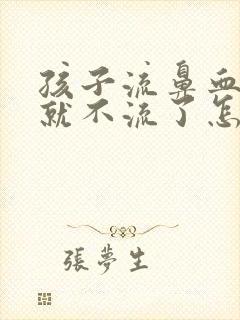 孩子流鼻血
就不流了怎
張夢生